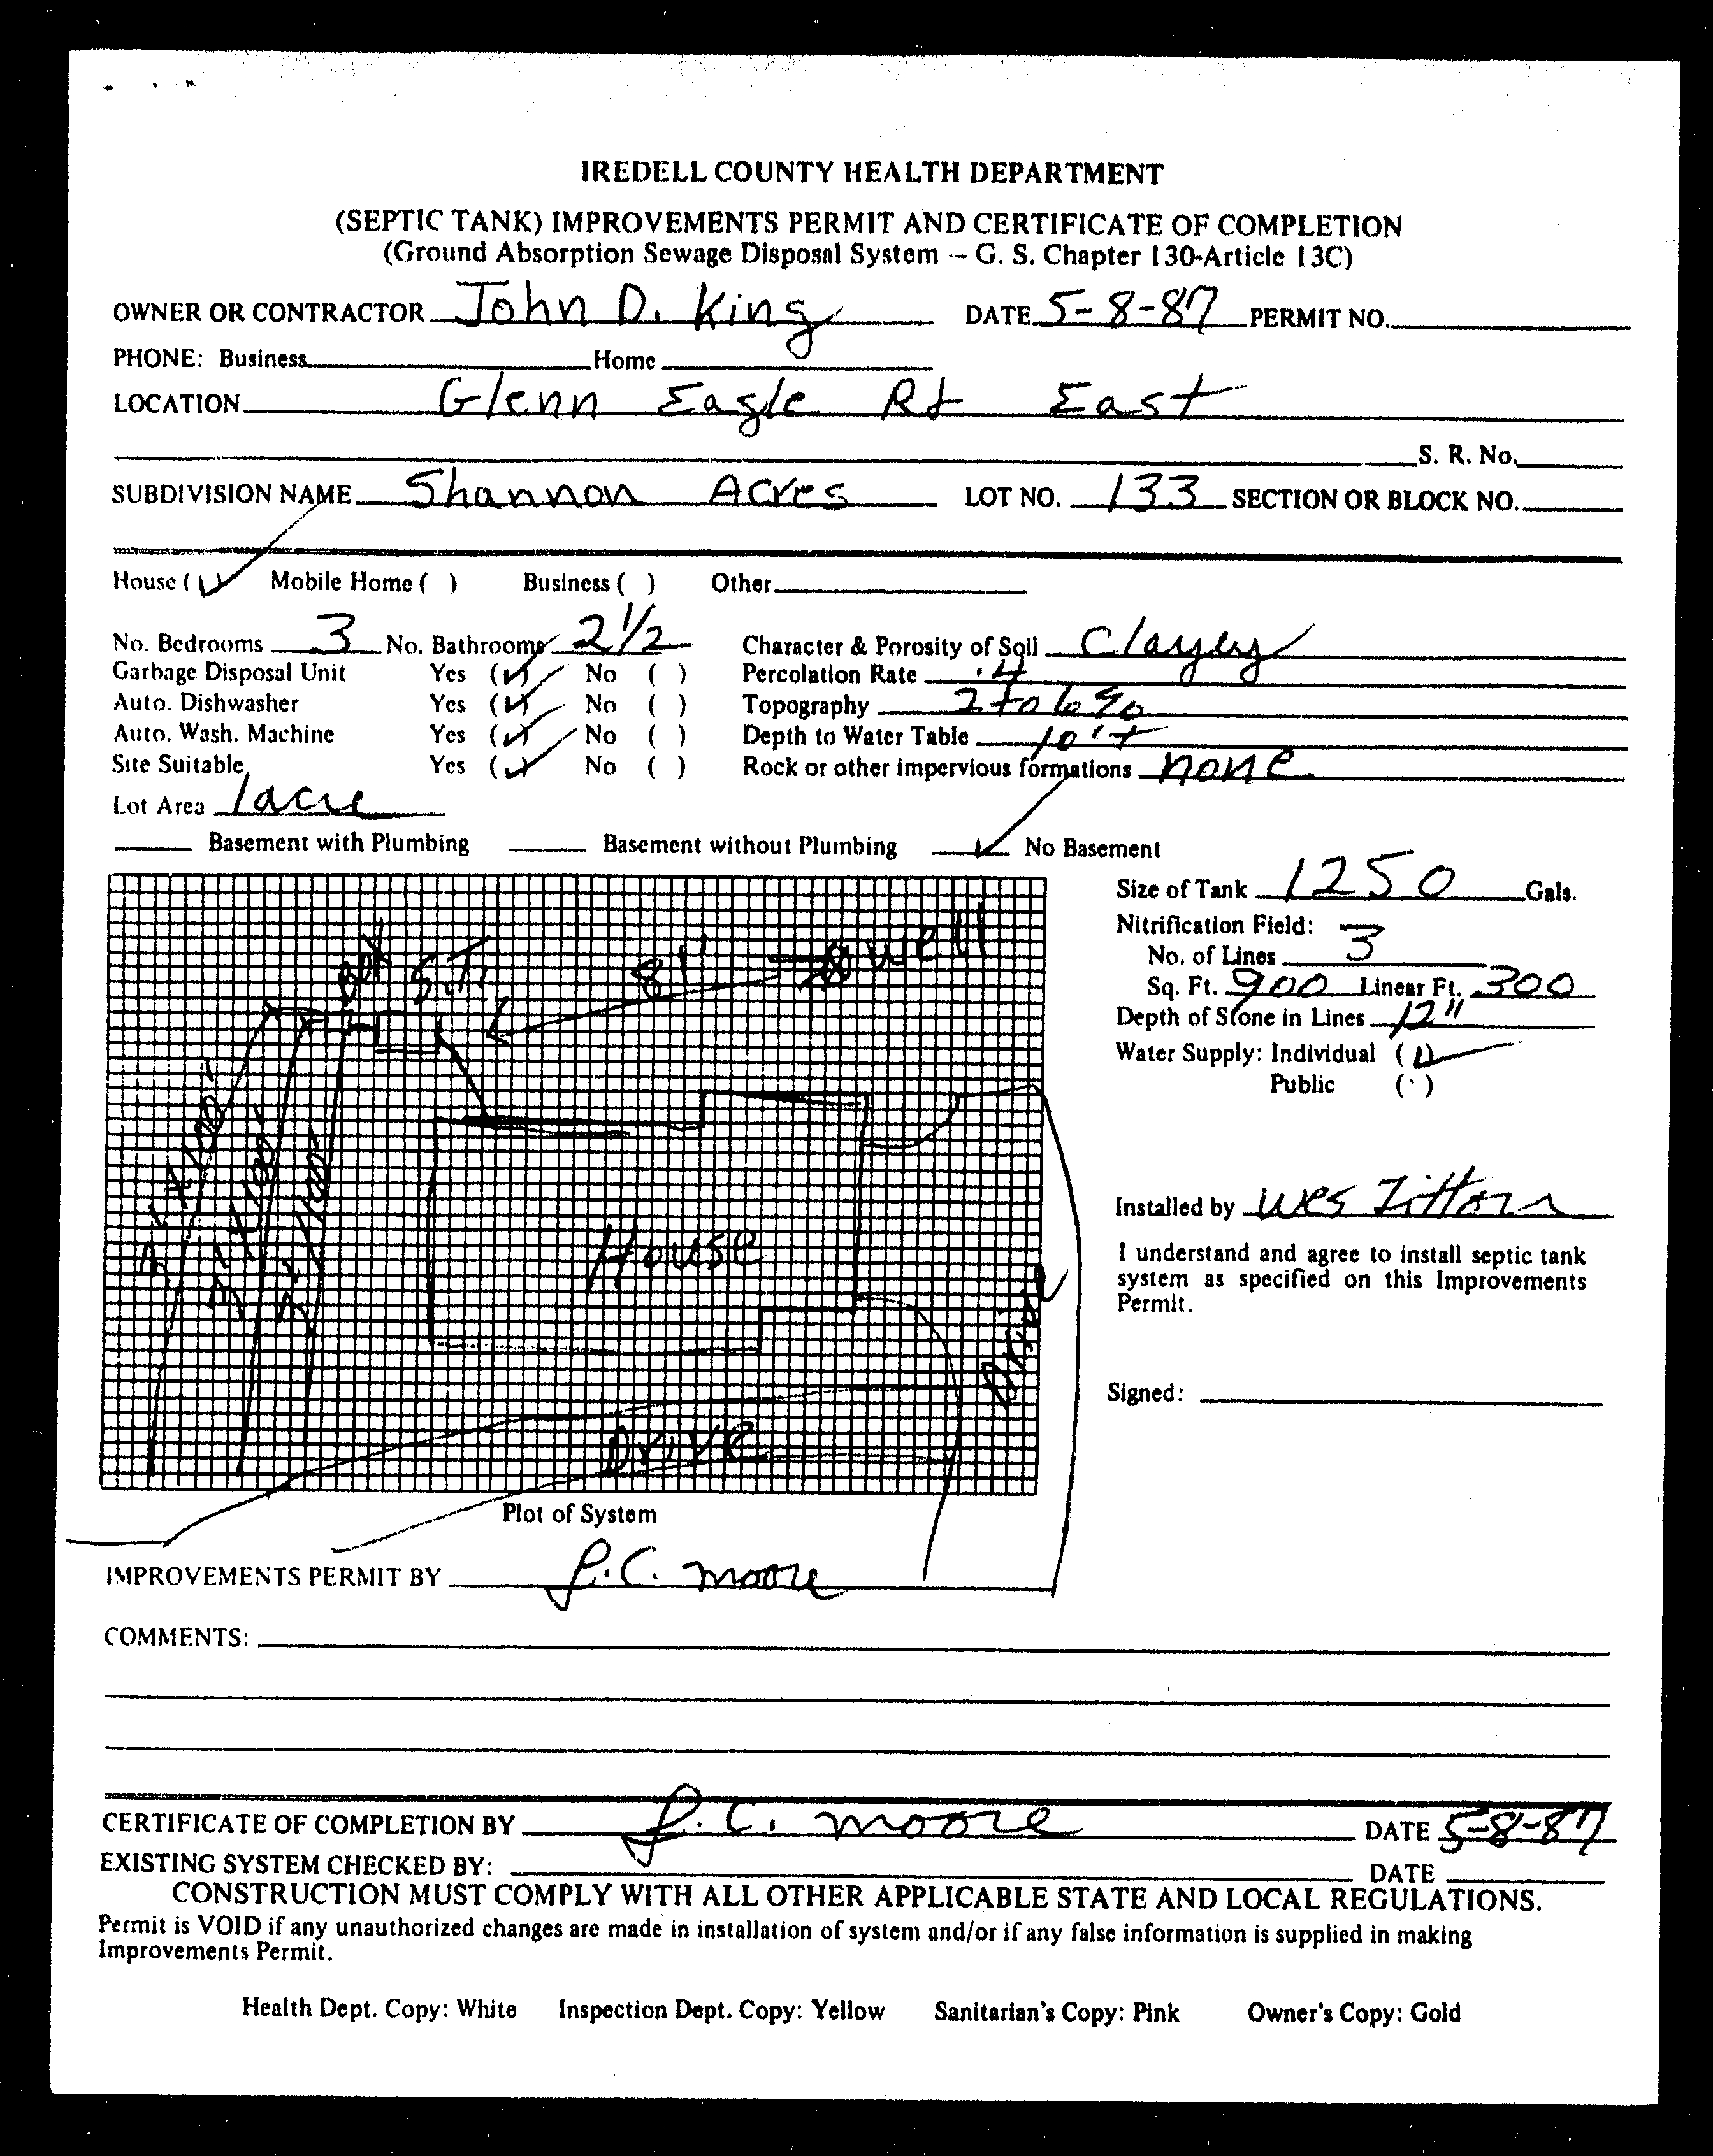 IREDELL COUNTY HEALTH DEPARTMENT
(SEPTIC TANK) IMPROVEMENTS PERMIT AND CERTIFICATE OF COMPLETION
(Ground Absorption Sewage Disposal System -- G. S. Chapter 130-Article 13C)
OWNER OR CONTRACTOR John D. King DATE 5-8-87 PERMIT NO.
PHONE: Business Home
LOCATION Glenn Eagle Rd East
S. R. No.
SUBDIVISION NAME Shannon Acres LOT NO. 133 SECTION OR BLOCK NO.
House (✓) Mobile Home ( ) Business ( ) Other
No. Bedrooms 3 No. Bathrooms 2 1/2 Character & Porosity of Soil Clayey
Garbage Disposal Unit Yes (✓) No ( ) Percolation Rate .4
Auto. Dishwasher Yes (✓) No ( ) Topography 2 to 6 %
Auto. Wash. Machine Yes (✓) No ( ) Depth to Water Table 10'+
Site Suitable Yes (✓) No ( ) Rock or other impervious formations none
Lot Area 1 acre
Basement with Plumbing Basement without Plumbing ✓ No Basement
Size of Tank 1250 Gals.
Nitrification Field:
No. of Lines 3
Sq. Ft. 900 Linear Ft. 300
Depth of Stone in Lines 12"
Water Supply: Individual (✓)
Public ( )
Box S.T. 81' well
3' x 100'
3' x 100'
3' x 100'
House
Drive
Drive
Installed by Wes
I understand and agree to install septic tank
system as specified on this Improvements
Permit.
Signed:
Plot of System
IMPROVEMENTS PERMIT BY J.C. Moore
COMMENTS:
CERTIFICATE OF COMPLETION BY J.C. Moore DATE 5-8-87
EXISTING SYSTEM CHECKED BY: DATE
CONSTRUCTION MUST COMPLY WITH ALL OTHER APPLICABLE STATE AND LOCAL REGULATIONS.
Permit is VOID if any unauthorized changes are made in installation of system and/or if any false information is supplied in making
Improvements Permit.
Health Dept. Copy: White Inspection Dept. Copy: Yellow Sanitarian's Copy: Pink Owner's Copy: Gold